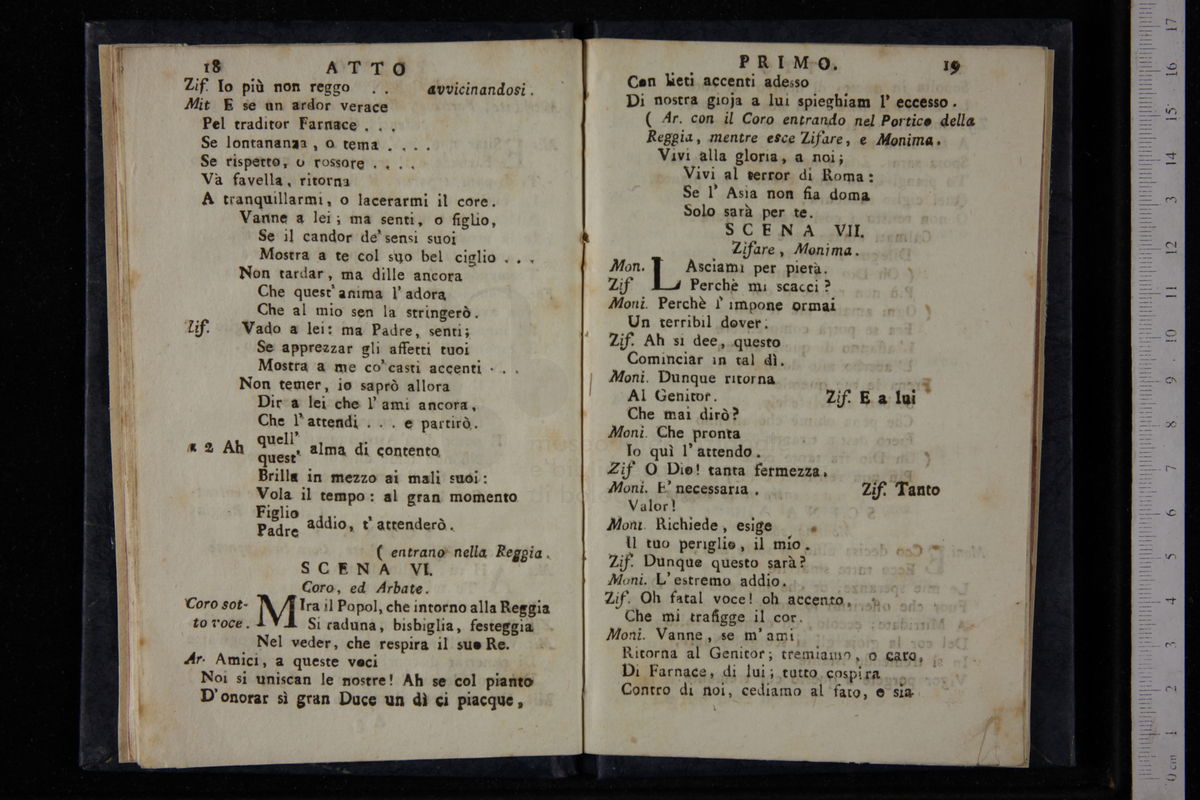 18 ATTO
Zif. Io più non reggo . . avvicinandosi.
Mit E se un ardor verace
Pel traditor Farnace . . .
Se lontananza, o tema . . . .
Se rispetto, o rossore . . . .
Và favella, ritorna
A tranquillarmi, o lacerarmi il core.
Vanne a lei; ma senti, o figlio,
Se il candor de' sensi suoi
Mostra a te col suo bel ciglio . . .
Non tardar, ma dille ancora
Che quest' anima l' adora
Che al mio sen la stringerò.
Zif. Vado a lei: ma Padre, senti;
Se apprezzar gli affetti tuoi
Mostra a me co' casti accenti . . .
Non temer, io saprò allora
Dir a lei che l' ami ancora,
Che l' attendi . . . e partirò.
a 2 Ah quell' quest' alma di contento
Brilla in mezzo ai mali suoi:
Vola il tempo: al gran momento
Figlio Padre addio, t' attenderò.
( entrano nella Reggia.
SCENA VI.
Coro, ed Arbate.
Coro sot- MIra il Popol, che intorno alla Reggia
to voce. Si raduna, bisbiglia, festeggia
Nel veder, che respira il suo Re.
Ar. Amici, a queste voci
Noi si uniscan le nostre! Ah se col pianto
D' onorar sì gran Duce un dì ci piacque,
PRIMO. 19
Con lieti accenti adesso
Di nostra gioja a lui spieghiam l' eccesso.
( Ar. con il Coro entrando nel Portico della
Reggia, mentre esce Zifare, e Monima.
Vivi alla gloria, a noi;
Vivi al terror di Roma:
Se l' Asia non fia doma
Solo sarà per te.
SCENA VII.
Zifare, Monima.
Mon. LAsciami per pietà.
Zif Perchè mi scacci?
Moni. Perchè l' impone ormai
Un terribil dover.
Zif. Ah si dee, questo
Cominciar in tal dì.
Moni. Dunque ritorna
Al Genitor. Zif. E a lui
Che mai dirò?
Moni. Che pronta
Io quì l' attendo.
Zif O Dio! tanta fermezza.
Moni. E' necessaria. Zif. Tanto
Valor!
Moni Richiede, esige
Il tuo periglio, il mio.
Zif. Dunque questo sarà?
Moni. L' estremo addio.
Zif. Oh fatal voce! oh accento,
Che mi trafigge il cor.
Moni. Vanne, se m' ami
Ritorna al Genitor; tremiamo, o caro,
Di Farnace, di lui; tutto cospira
Contro di noi, cediamo al fato, e sia